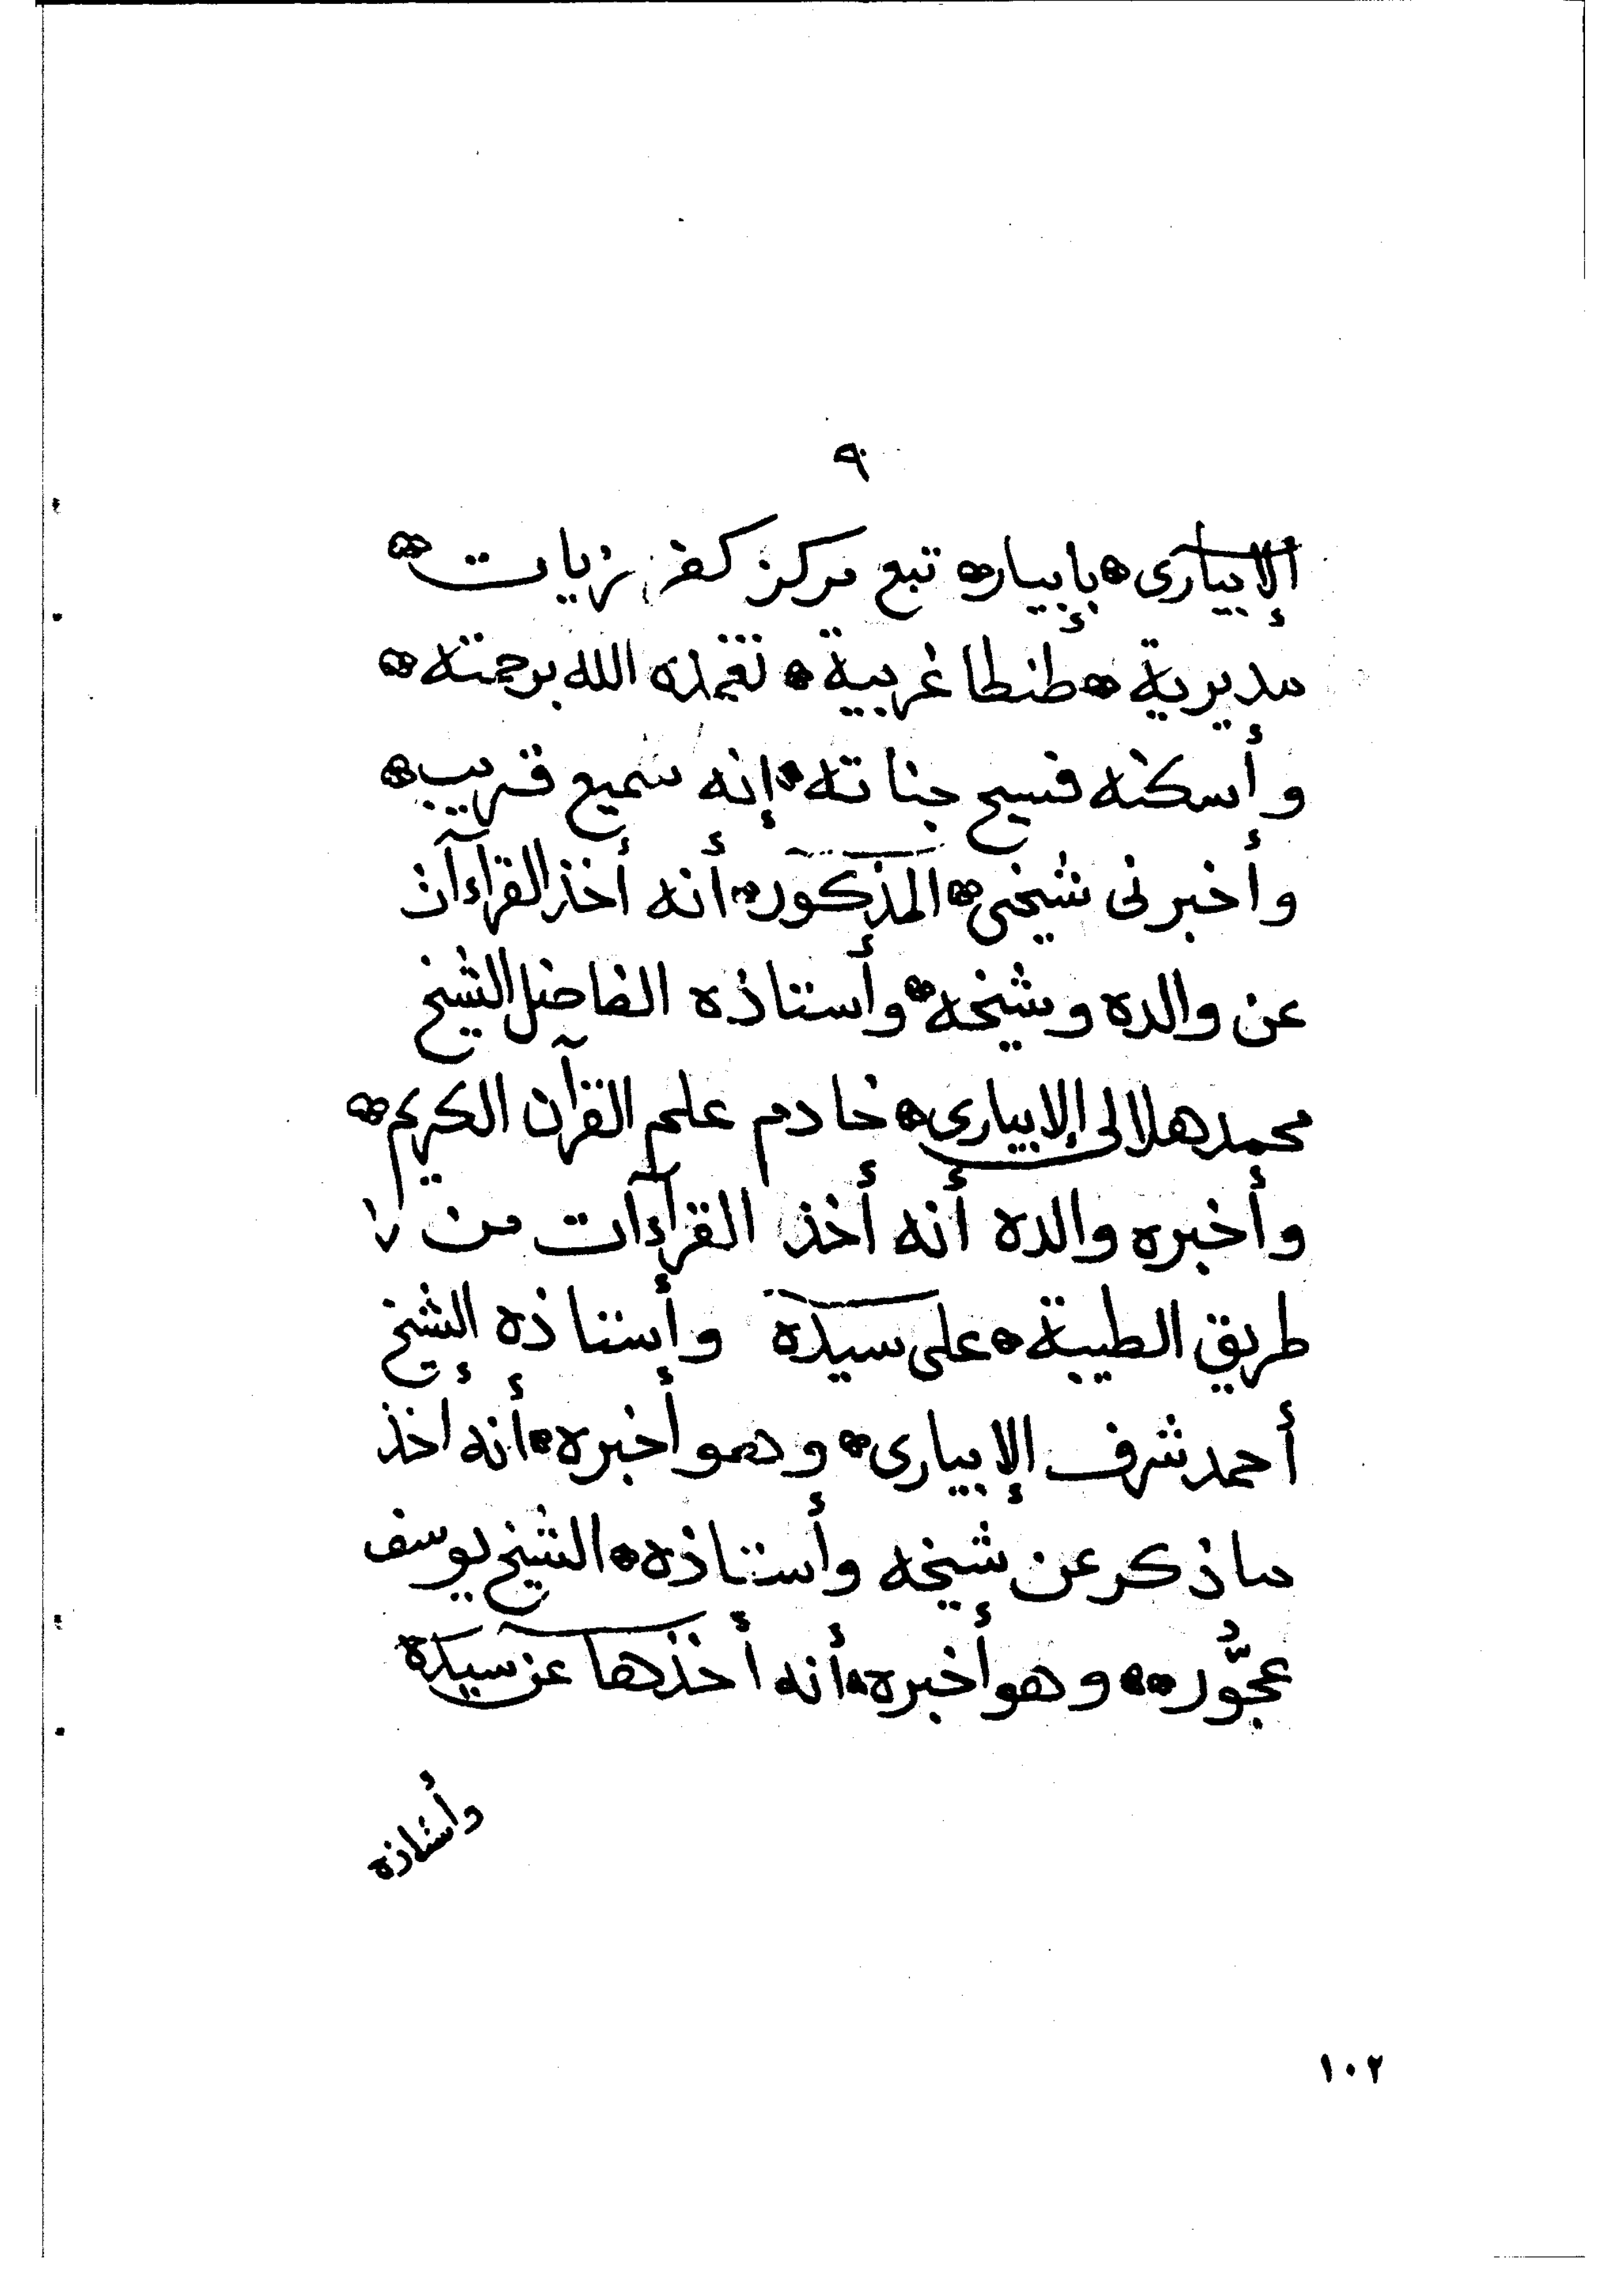 ٩
الإبيارى بإبيار تبع مركز كفر زيات
مديرية طنطا غربية تغمده الله برحمته
وأسكنه فسيح جناته إنه سميع قريب
وأخبرنى شيخى المذكور أنه أخذ القراءآت
عن والده وشيخه وأستاذه الفاضل الشيخ
محمد هلالى الإبيارى خادم علم القرآن الكريم
وأخبره والده أنه أخذ القراءآت من
طريق الطيبة على سيده وأستاذه الشيخ
أحمد شرف الإبيارى وهو أخبره أنه أخذ
ما ذكر عن شيخه وأستاذه الشيخ يوسف
عجُّور وهو أخبره أنه أخذها عن سيده
وأستاذه
١٠٢